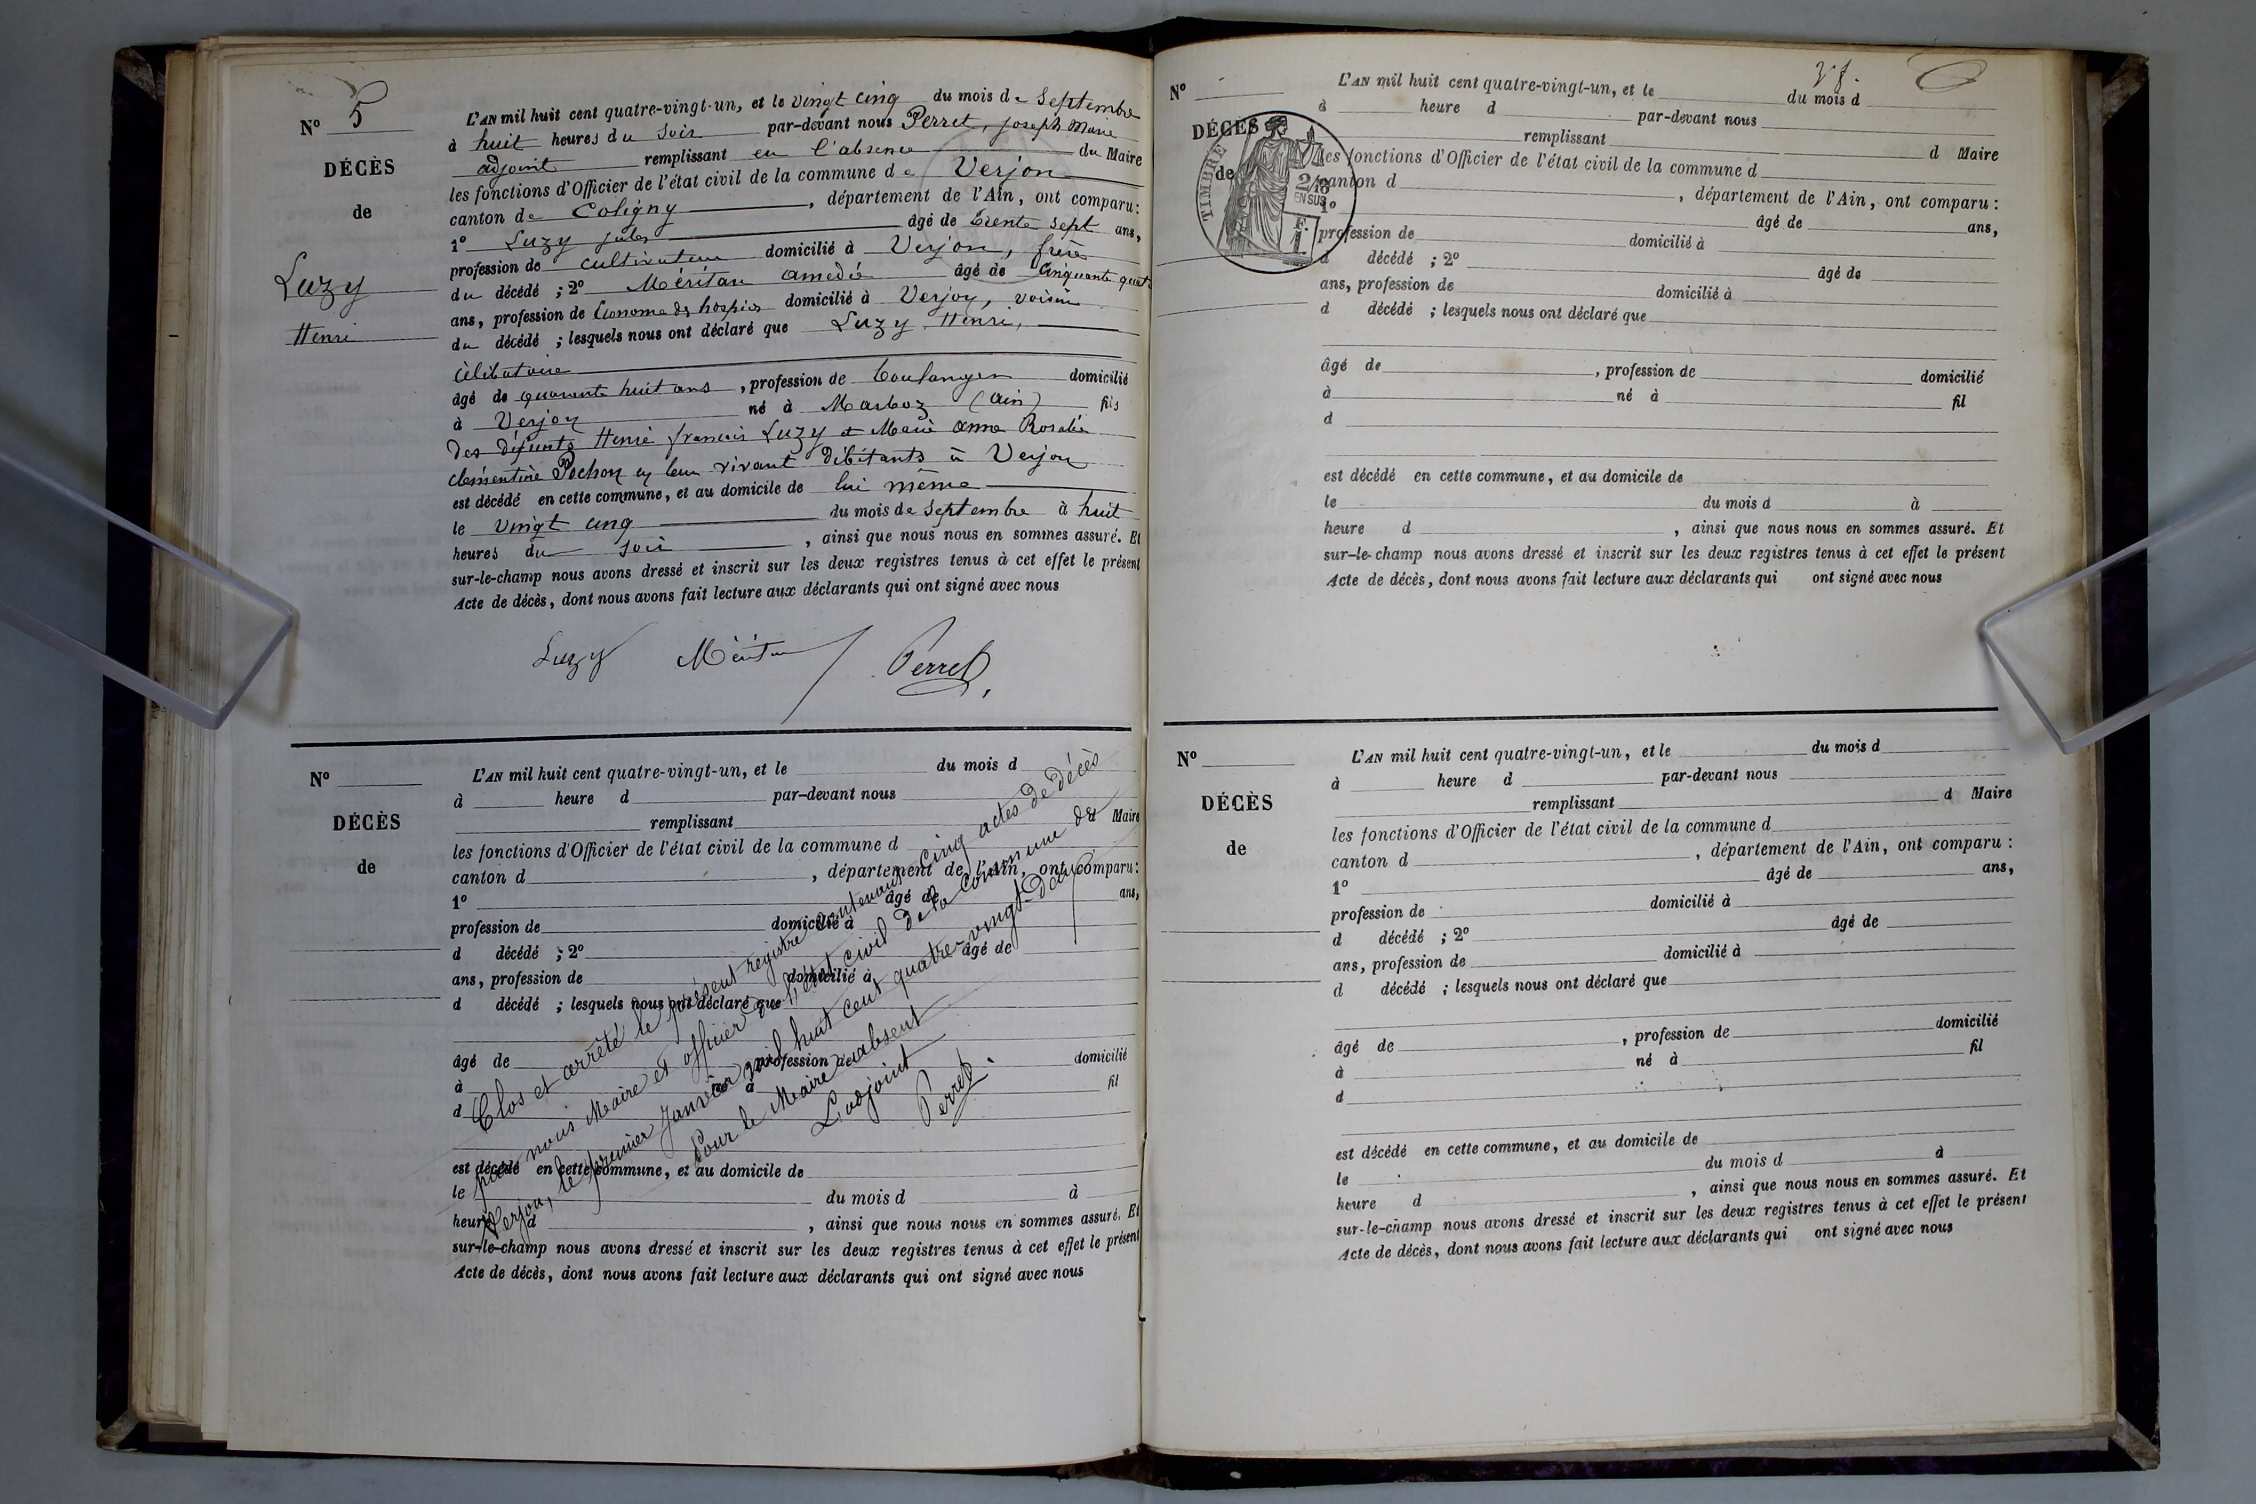 N° 5
DÉCÈS
de
Luzy
Henri
L'AN mil huit cent quatre-vingt-un, et le vingt cinq du mois de Septembre
à huit heures du soir par-devant nous Perret, joseph Marie
adjoint remplissant en l'absence du Maire
les fonctions d'Officier de l'état civil de la commune de Verjon
canton de Coligny, département de l'Ain, ont comparu :
1° Luzy jules âgé de trente sept ans,
profession de cultivateur domicilié à Verjon, frère
du décédé ; 2° Méritan amedée âgé de Cinquante quatre
ans, profession de Econome des hospices domicilié à Verjon, voisin
du décédé ; lesquels nous ont déclaré que Luzy Henri,
Célibataire
âgé de quarante huit ans, profession de boulanger domicilié
à Verjon né à Marboz (ain) fils
des défunts Henri françois Luzy et Marie anne Rosalie
clémentine Pochon en leur vivant débitants à Verjon
est décédé en cette commune, et au domicile de lui même
le vingt cinq du mois de septembre à huit
heures du soir, ainsi que nous nous en sommes assuré. Et
sur-le-champ nous avons dressé et inscrit sur les deux registres tenus à cet effet le présent
Acte de décès, dont nous avons fait lecture aux déclarants qui ont signé avec nous
Luzy Méritan Perret
N°
DÉCÈS
de
L'AN mil huit cent quatre-vingt-un, et le du mois d
à heure d par-devant nous
remplissant d Maire
les fonctions d'Officier de l'état civil de la commune d
canton d , département de l'Ain, ont comparu :
1° âgé de ans,
profession de domicilié à
d décédé ; 2° âgé de
ans, profession de domicilié à
d décédé ; lesquels nous ont déclaré que
âgé de , profession de domicilié
à né à fil
d
est décédé en cette commune, et au domicile de
le du mois d à
heure d , ainsi que nous nous en sommes assuré. Et
sur-le-champ nous avons dressé et inscrit sur les deux registres tenus à cet effet le présent
Acte de décès, dont nous avons fait lecture aux déclarants qui ont signé avec nous
Clos et arrêté le présent registre contenant cinq actes de décès
par nous Maire et officier de l'état civil de la commune de
Verjon, le premier Janvier mil huit cent quatre-vingt-deux
Pour le Maire absent
L'adjoint
Perret
N°
DÉCÈS
de
TIMBRE
2/10
EN SUS
F.
1
L'AN mil huit cent quatre-vingt-un, et le du mois d
à heure d par-devant nous
remplissant d Maire
les fonctions d'Officier de l'état civil de la commune d
canton d , département de l'Ain, ont comparu :
1° âgé de ans,
profession de domicilié à
d décédé ; 2° âgé de
ans, profession de domicilié à
d décédé ; lesquels nous ont déclaré que
âgé de , profession de domicilié
à né à fil
d
est décédé en cette commune, et au domicile de
le du mois d à
heure d , ainsi que nous nous en sommes assuré. Et
sur-le-champ nous avons dressé et inscrit sur les deux registres tenus à cet effet le présent
Acte de décès, dont nous avons fait lecture aux déclarants qui ont signé avec nous
N°
DÉCÈS
de
L'AN mil huit cent quatre-vingt-un, et le du mois d
à heure d par-devant nous
remplissant d Maire
les fonctions d'Officier de l'état civil de la commune d
canton d , département de l'Ain, ont comparu :
1° âgé de ans,
profession de domicilié à
d décédé ; 2° âgé de
ans, profession de domicilié à
d décédé ; lesquels nous ont déclaré que
âgé de , profession de domicilié
à né à fil
d
est décédé en cette commune, et au domicile de
le du mois d à
heure d , ainsi que nous nous en sommes assuré. Et
sur-le-champ nous avons dressé et inscrit sur les deux registres tenus à cet effet le présent
Acte de décès, dont nous avons fait lecture aux déclarants qui ont signé avec nous